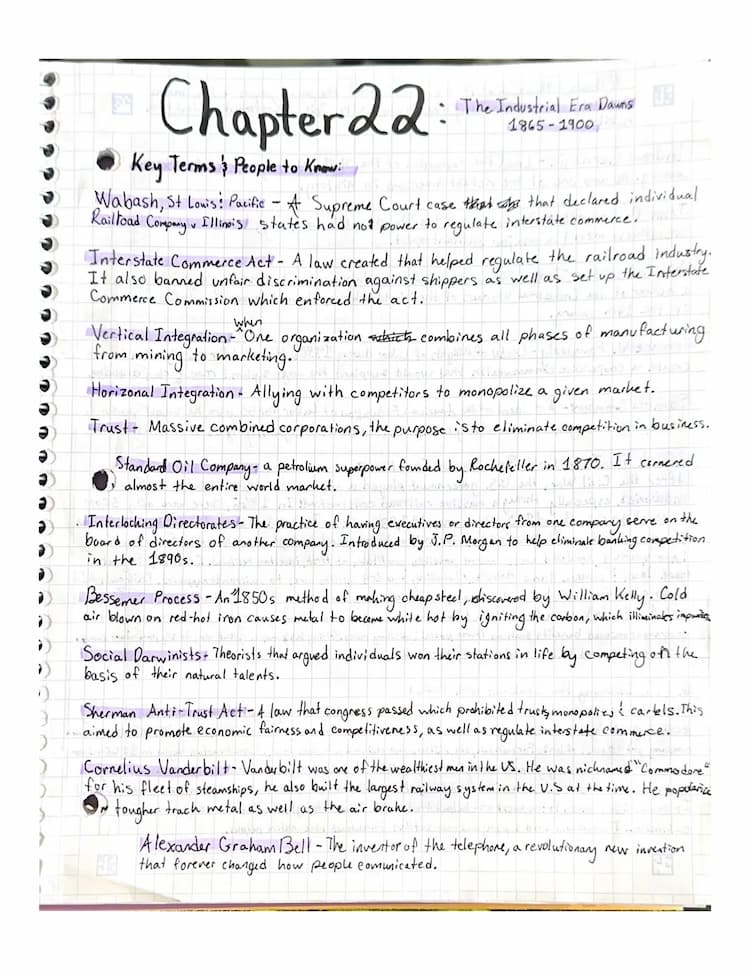 Chapter 22: The Industrial Era Dawns
1865-1900
Key Terms & People to Know:
Wabash, St Louis & Pacific - A Supreme Court case that declared individual
Railroad Company v Illinois states had not power to regulate interstate commerce.
Interstate Commerce Act - A law created that helped regulate the railroad industry.
It also banned unfair discrimination against shippers as well as set up the Interstate
Commerce Commission which enforced the act.
Vertical Integration - When One organization which combines all phases of manufacturing
from mining to marketing.
Horizonal Integration - Allying with competitors to monopolize a given market.
Trust - Massive combined corporations, the purpose is to eliminate competition in business.
Standard Oil Company - a petrolium superpower founded by Rockefeller in 1870. It cornered
almost the entire world market.
Interlocking Directorates - The practice of having executives or directors from one company serve on the
board of directors of another company. Introduced by J.P. Morgan to help eliminate banking competition
in the 1890s.
Bessemer Process - An 1850s method of making cheap steel, discovered by William Kelly. Cold
air blown on red-hot iron causes metal to become white hot by igniting the carbon, which illiminates
Social Darwinists - Theorists that argued individuals won their stations in life by competing on the
basis of their natural talents.
Sherman Anti-Trust Act - A law that congress passed which prohibited trusts, monopolies & cartels. This
aimed to promote economic fairness and competitiveness, as well as regulate interstate commerce.
Cornelius Vanderbilt - Vanderbilt was one of the wealthiest men in the US. He was nicknamed "Commodore"
for his fleet of steamships, he also built the largest railway system in the U.S at the time. He
tougher track metal as well as the air brake.
Alexander Graham Bell - The inventor of the telephone, a revolutionary new invention
that forever changed how people comunicated.